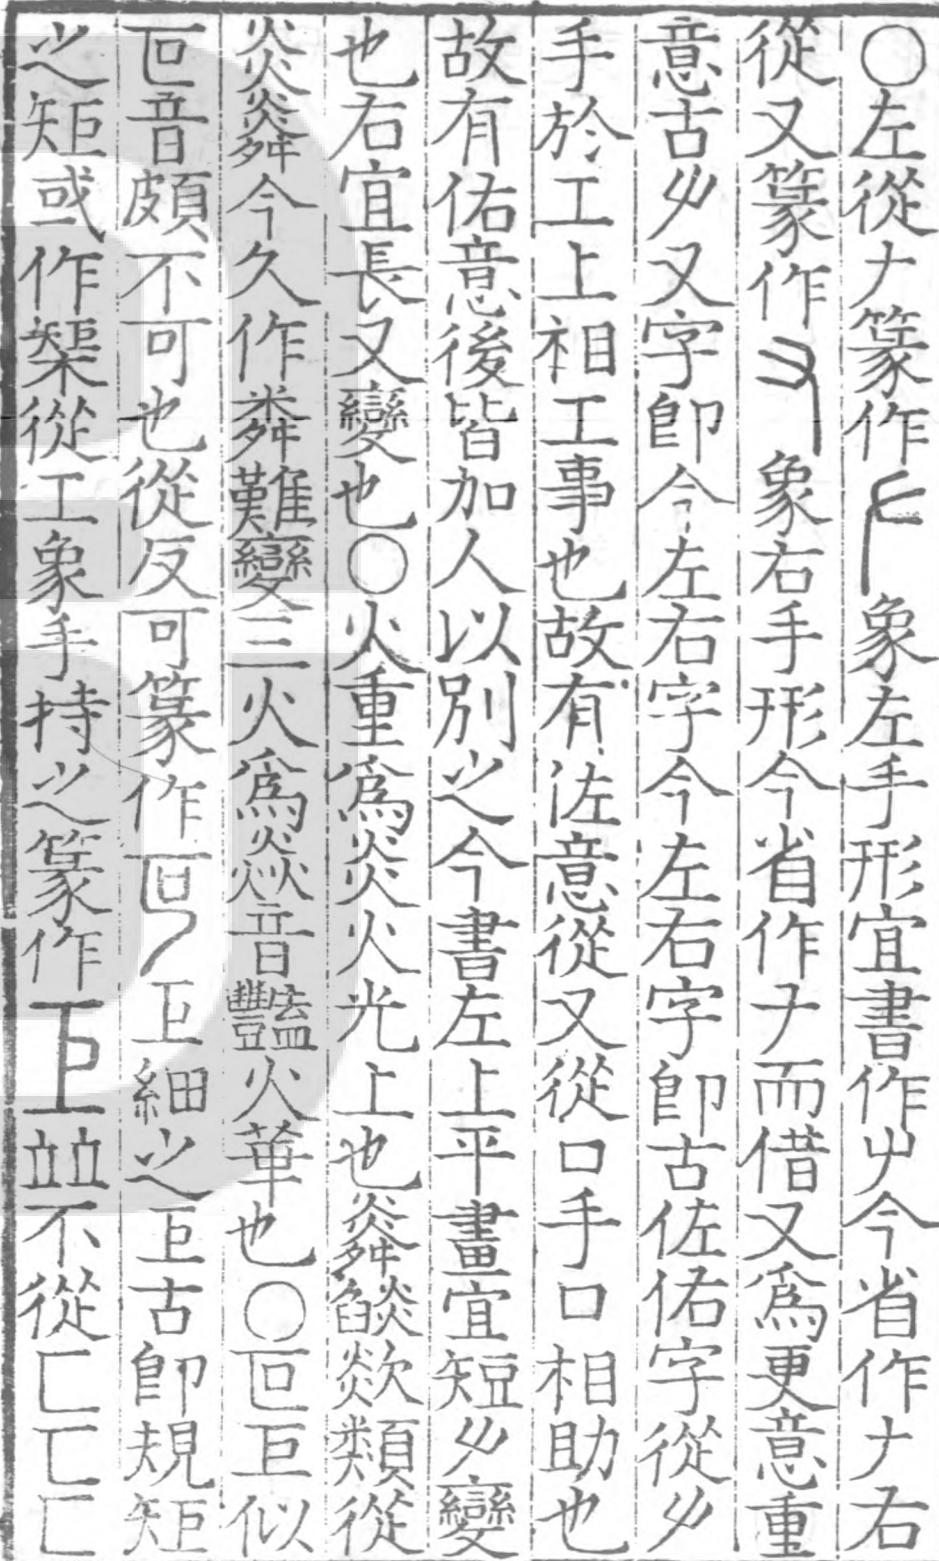 ○左從𠂇篆作𠂇象左手形宜書作屮今省作𠂇右
從又篆作又象右手形今省作ナ而借又爲更意重
意古屮又字卽今左右字今左右字卽古佐佑字從屮
手於工上相工事也故有佐意從又從口手口相助也
故有佑意後皆加人以別之今書左上平畫宜短屮變
也右宜長又變也○火重爲炎火光上也燊燄欻類從
炎粦今久作粦難變三火爲焱音豔火華也○叵巨似
叵音頗不可也從反可篆作叵巨細之巨古卽規矩
之矩或作榘從工象手持之篆作巨並不從匚匸匚